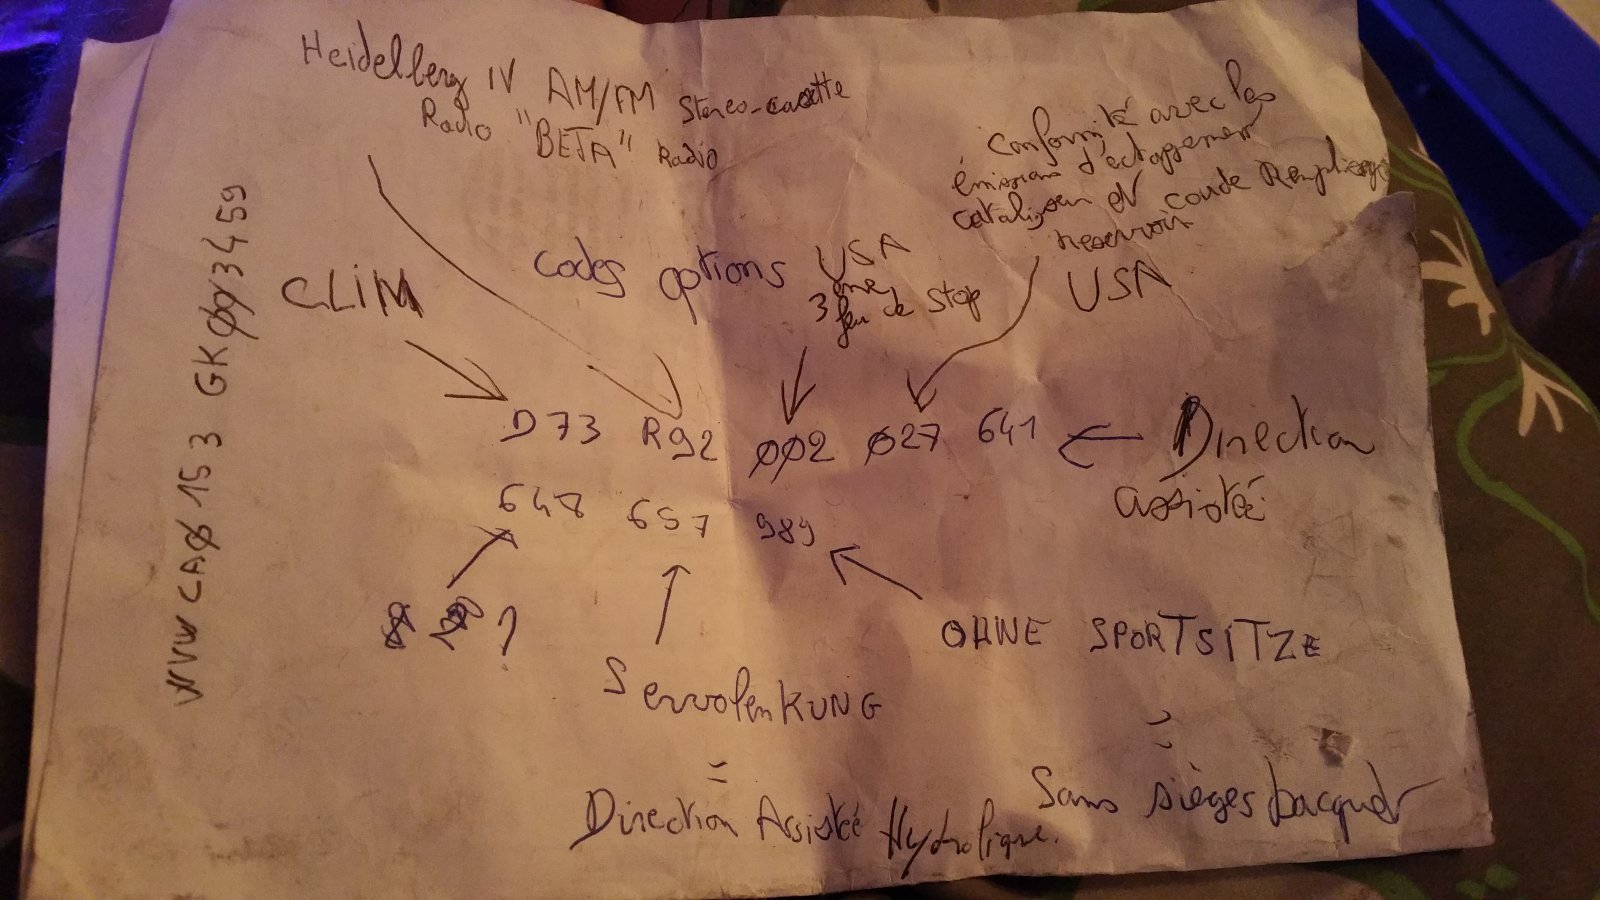 Heidelberg IV AM/FM Stereo-casette
Radio "BETA" Radio
conformité avec les
émissions d'echappement
catalizeur et coude Remplissage
reservoir
USA
codes options
USA
3 eme
feu de stop
CLIM
WVWCAØ153GKØØ3459
D73 R92 ØØ2 Ø27 641
Direction
assistée
648 657 989
?
Servolenkung
=
Direction Assistée Hydrolique.
OHNE SPORTSITZE
=
Sans sièges bacquet